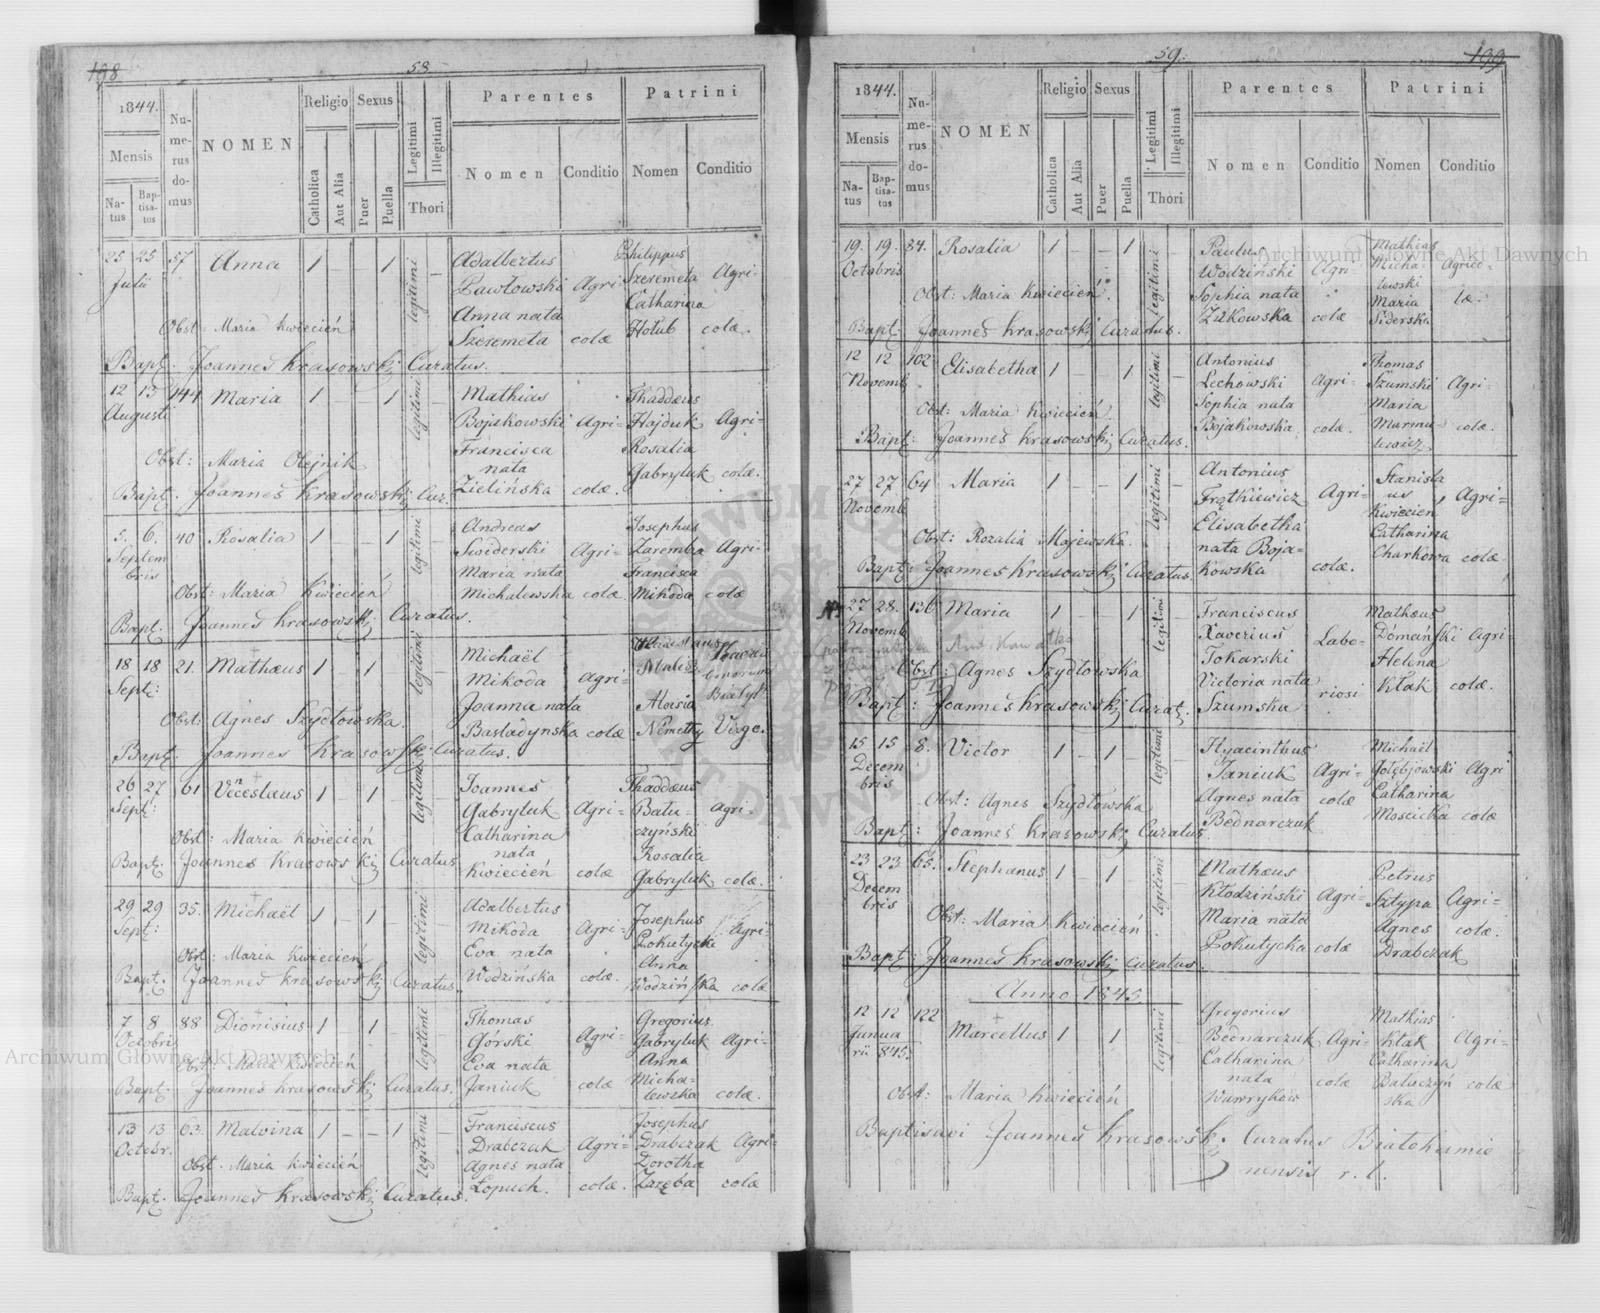 198
58
1844.
Numerus domus
NOMEN
Religio
Sexus
Legitimi
Illegitimi
Parentes
Patrini
Mensis
Natus
Baptisatus
Catholica
Aut Alia
Puer
Puella
Thori
Nomen
Conditio
Nomen
Conditio
25 25 57 Anna 1 – – 1 legitimi – Adalbertus Philippus
Julii Pawłowski Agri- Szeremeta Agri-
Anna nata Catharina
Obst: Maria Kwiecień Szeremeta colæ Hołub colæ.
Bapt. Joannes Krasowski Curatus.
12 13 144 Maria 1 – – 1 legitimi – Mathias Thaddæus
Augusti Bojakowski Agri- Hajduk Agri-
Francisca Rosalia
Obst: Maria Olejnik nata Gabryluk colæ.
Bapt. Joannes Krasowski Cur. Zielińska colæ.
5. 6. 40 Rosalia 1 – – 1 legitimi – Andreas Josephus
Septembris Swiderski Agri- Zaremba Agri-
Maria nata Francisca
Obst: Maria Kwiecień Michalewska colæ Mikoda colæ
Bapt. Joannes Krasowski Curatus.
18 18 21. Mathæus 1 – 1 – legitimi – Michaël
Sept: Mikoda Agri-
Joanna nata Aloisia
Obst: Agnes Szydłowska. Basladynska colæ Némethy Virgo.
Bapt. Joannes Krasowski Curatus.
26 27 61 Venceslaus 1 – 1 – legitimi – Joannes Thaddæus
Sept: Gabryluk Agri- Batu- agri-
Catharina czyński
Obst: Maria Kwiecień nata Rosalia
Bapt. Joannes Krasowski Curatus. Kwiecień colæ Gabryluk colæ.
29 29 35. Michaël 1 – 1 – legitimi – Adalbertus Josephus
Sept: Mikoda Agri- Pokutycki Agri-
Obst: Maria Kwiecień Eva nata Anna
Bapt. Joannes Krasowski Curatus. Wodzińska colæ. Wodzińska colæ
7 8 88 Dionisius 1 – 1 – legitimi – Thomas Gregorius
Octobris Górski Agri- Gabryluk Agri-
Obst: Maria Kwiecień Eva nata Anna
Bapt. Joannes Krasowski Curatus. Janiuk colæ Michalewska colæ.
13 13 63. Malvina 1 – – 1 legitimi Franciscus Josephus
Octobr. Drabczak Agri- Drabczak Agri-
Obst. Maria Kwiecień Agnes nata Dorotha
Bapt. Joannes Krasowski Curatus. Lopuch. colæ. Zaręba colæ
59.
199
1844.
Numerus domus
NOMEN
Religio
Sexus
Legitimi
Illegitimi
Parentes
Patrini
Mensis
Natus
Baptisatus
Catholica
Aut Alia
Puer
Puella
Thori
Nomen
Conditio
Nomen
Conditio
19. 19. 84. Rosalia 1 – – 1 legitimi – Paulus Mathias
Octobris Wodziński Agri- Michalewski Agrico-
Obst: Maria Kwiecień. Sophia nata Maria læ.
Bapt. Joannes Krasowski Curatus. Żukowska colæ Siderska
12 12 102 Elisabetha 1 – – 1 legitimi – Antonius Thomas
Novemb Lechowski Agri- Szumski Agri-
Obst: Maria Kwiecień Sophia nata Maria
Bapt: Joannes Krasowski Curatus. Bojakowska colæ. Marinulewicz colæ.
27 27 64 Maria 1 – – 1 legitimi – Antonius Stanislaus
Novemb Frątkiewicz Agri- Kwiecien Agri-
Obst: Rozalia Majewska. Elisabetha Catharina
Bapt: Joannes Krasowski Curatus. nata Bojakowska colæ. Charkowa colæ
27 28. 126 Maria 1 – – 1 legitimi – Franciscus Mathæus
Novemb Xaverius Labo- Domański Agri-
Tokarski Helena
Obst: Agnes Szydłowska Victoria nata riosi Kłak colæ.
Bapt: Joannes Krasowski Curat. Szumska
15 15 8. Victor 1 – 1 – legitimi – Hyacinthus Michaël
Decembris Janiuk Agri- Gołębjowski Agri
Obst: Agnes Szydłowska Agnes nata colæ Catharina
Bapt: Joannes Krasowski Curatus. Bednarczuk Moscicka colæ
23 23 65. Stephanus 1 – 1 – legitimi – Mathæus Petrus
Decembris Kłodziński Agri- Sztypa Agri-
Obst: Maria Kwiecień Maria nata Agnes colæ.
Bapt: Joannes Krasowski Curatus. Pokutycka colæ Drabczak
Anno 1845
12 12 122 Marcellus 1 1 legitimi Gregorius Mathias
Januarii 845. Bednarczuk Agri- Kłak Agri-
Catharina Catharina
Obst: Maria Kwiecień nata colæ Batuczyńska colæ
Wawryków
Baptisavi Joannes Krasowski Curatus Białokamienensis r. l.
Archiwum Główne Akt Dawnych
Archiwum Główne Akt Dawnych